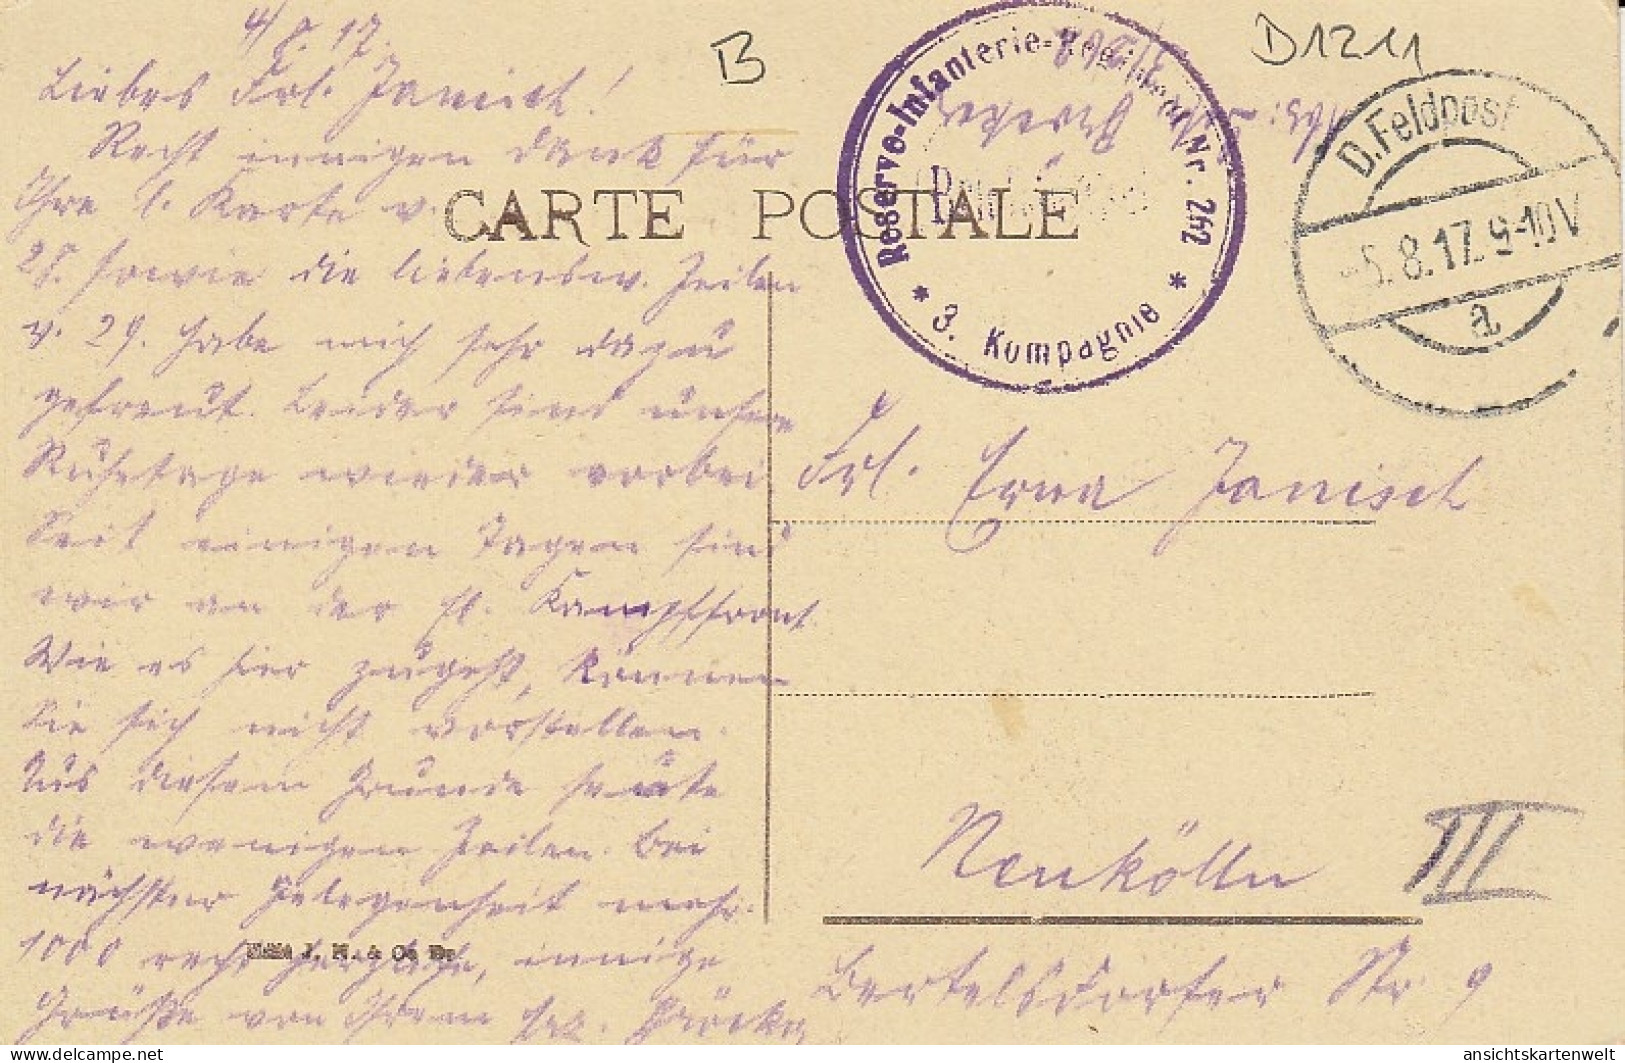 4/8.17.
B
D1211
Liebes Frl. Janisch!
Recht innigen Dank für
Ihre l. Karte v.
28. sowie die liebensw. Zeilen
v. 29. habe mich sehr dazu
gefreut. Leider sind unsere
Ruhetage wieder vorbei
Seit einigen Tagen sind
wir an der fl. Kampffront.
Wie es hier zugeht, können
Sie sich nicht vorstellen.
Aus diesem Grunde heute
die wenigen Zeilen. Bei
nächster Gelegenheit mehr.
1000 recht herzliche, innige
Grüße von Ihrem
CARTE POSTALE
Reserve-Infanterie-Regiment Nr. 262
* 3. Kompagnie *
D. Feldpost
-5.8.17.9-10V
a
Frl. Erna Janisch
Neukölln
III
Bertelsdorfer Str. 9
ansichtskartenwelt.de
ansichtskartenwelt